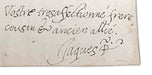 Vostre tresaffectionné frere
cousin & ancien allié.
Jaques R